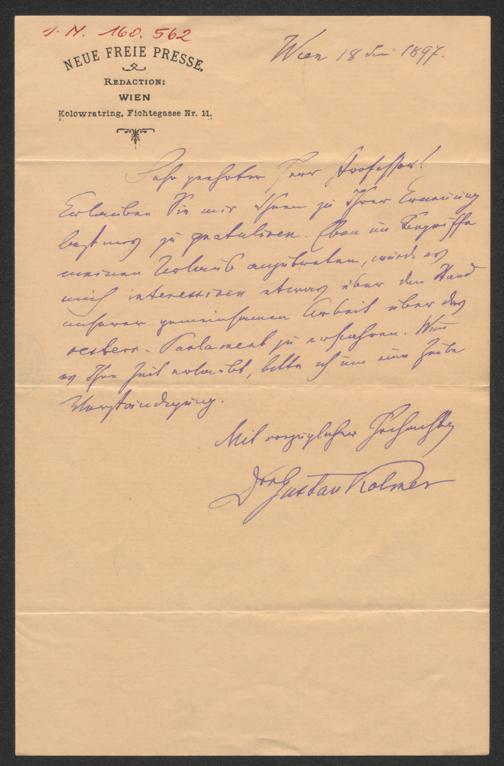 I. N. 160.562
NEUE FREIE PRESSE.
REDACTION:
WIEN
Kolowratring, Fichtegasse Nr. 11.
Wien 18 Juni 1897.
Sehr geehrter Herr Professor!
Erlauben Sie mir Ihnen zu Ihrer Ernennung
bestens zu gratuliren. Eben im Begriffe
meinen Urlaub anzutreten, würde es
mich interessiren etwas über den Stand
unserer gemeinsamen Arbeit über das
oesterr. Parlament zu erfahren. Wenn
es Ihre Zeit erlaubt, bitte ich um eine Zeile
Verständigung.
Mit vorzüglicher Hochachtg
Dr Gustav Kolmer